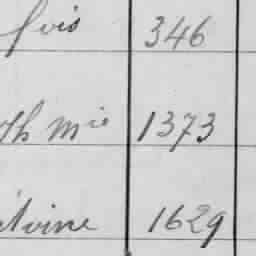 fois 346
th mie 1373
toine 1629